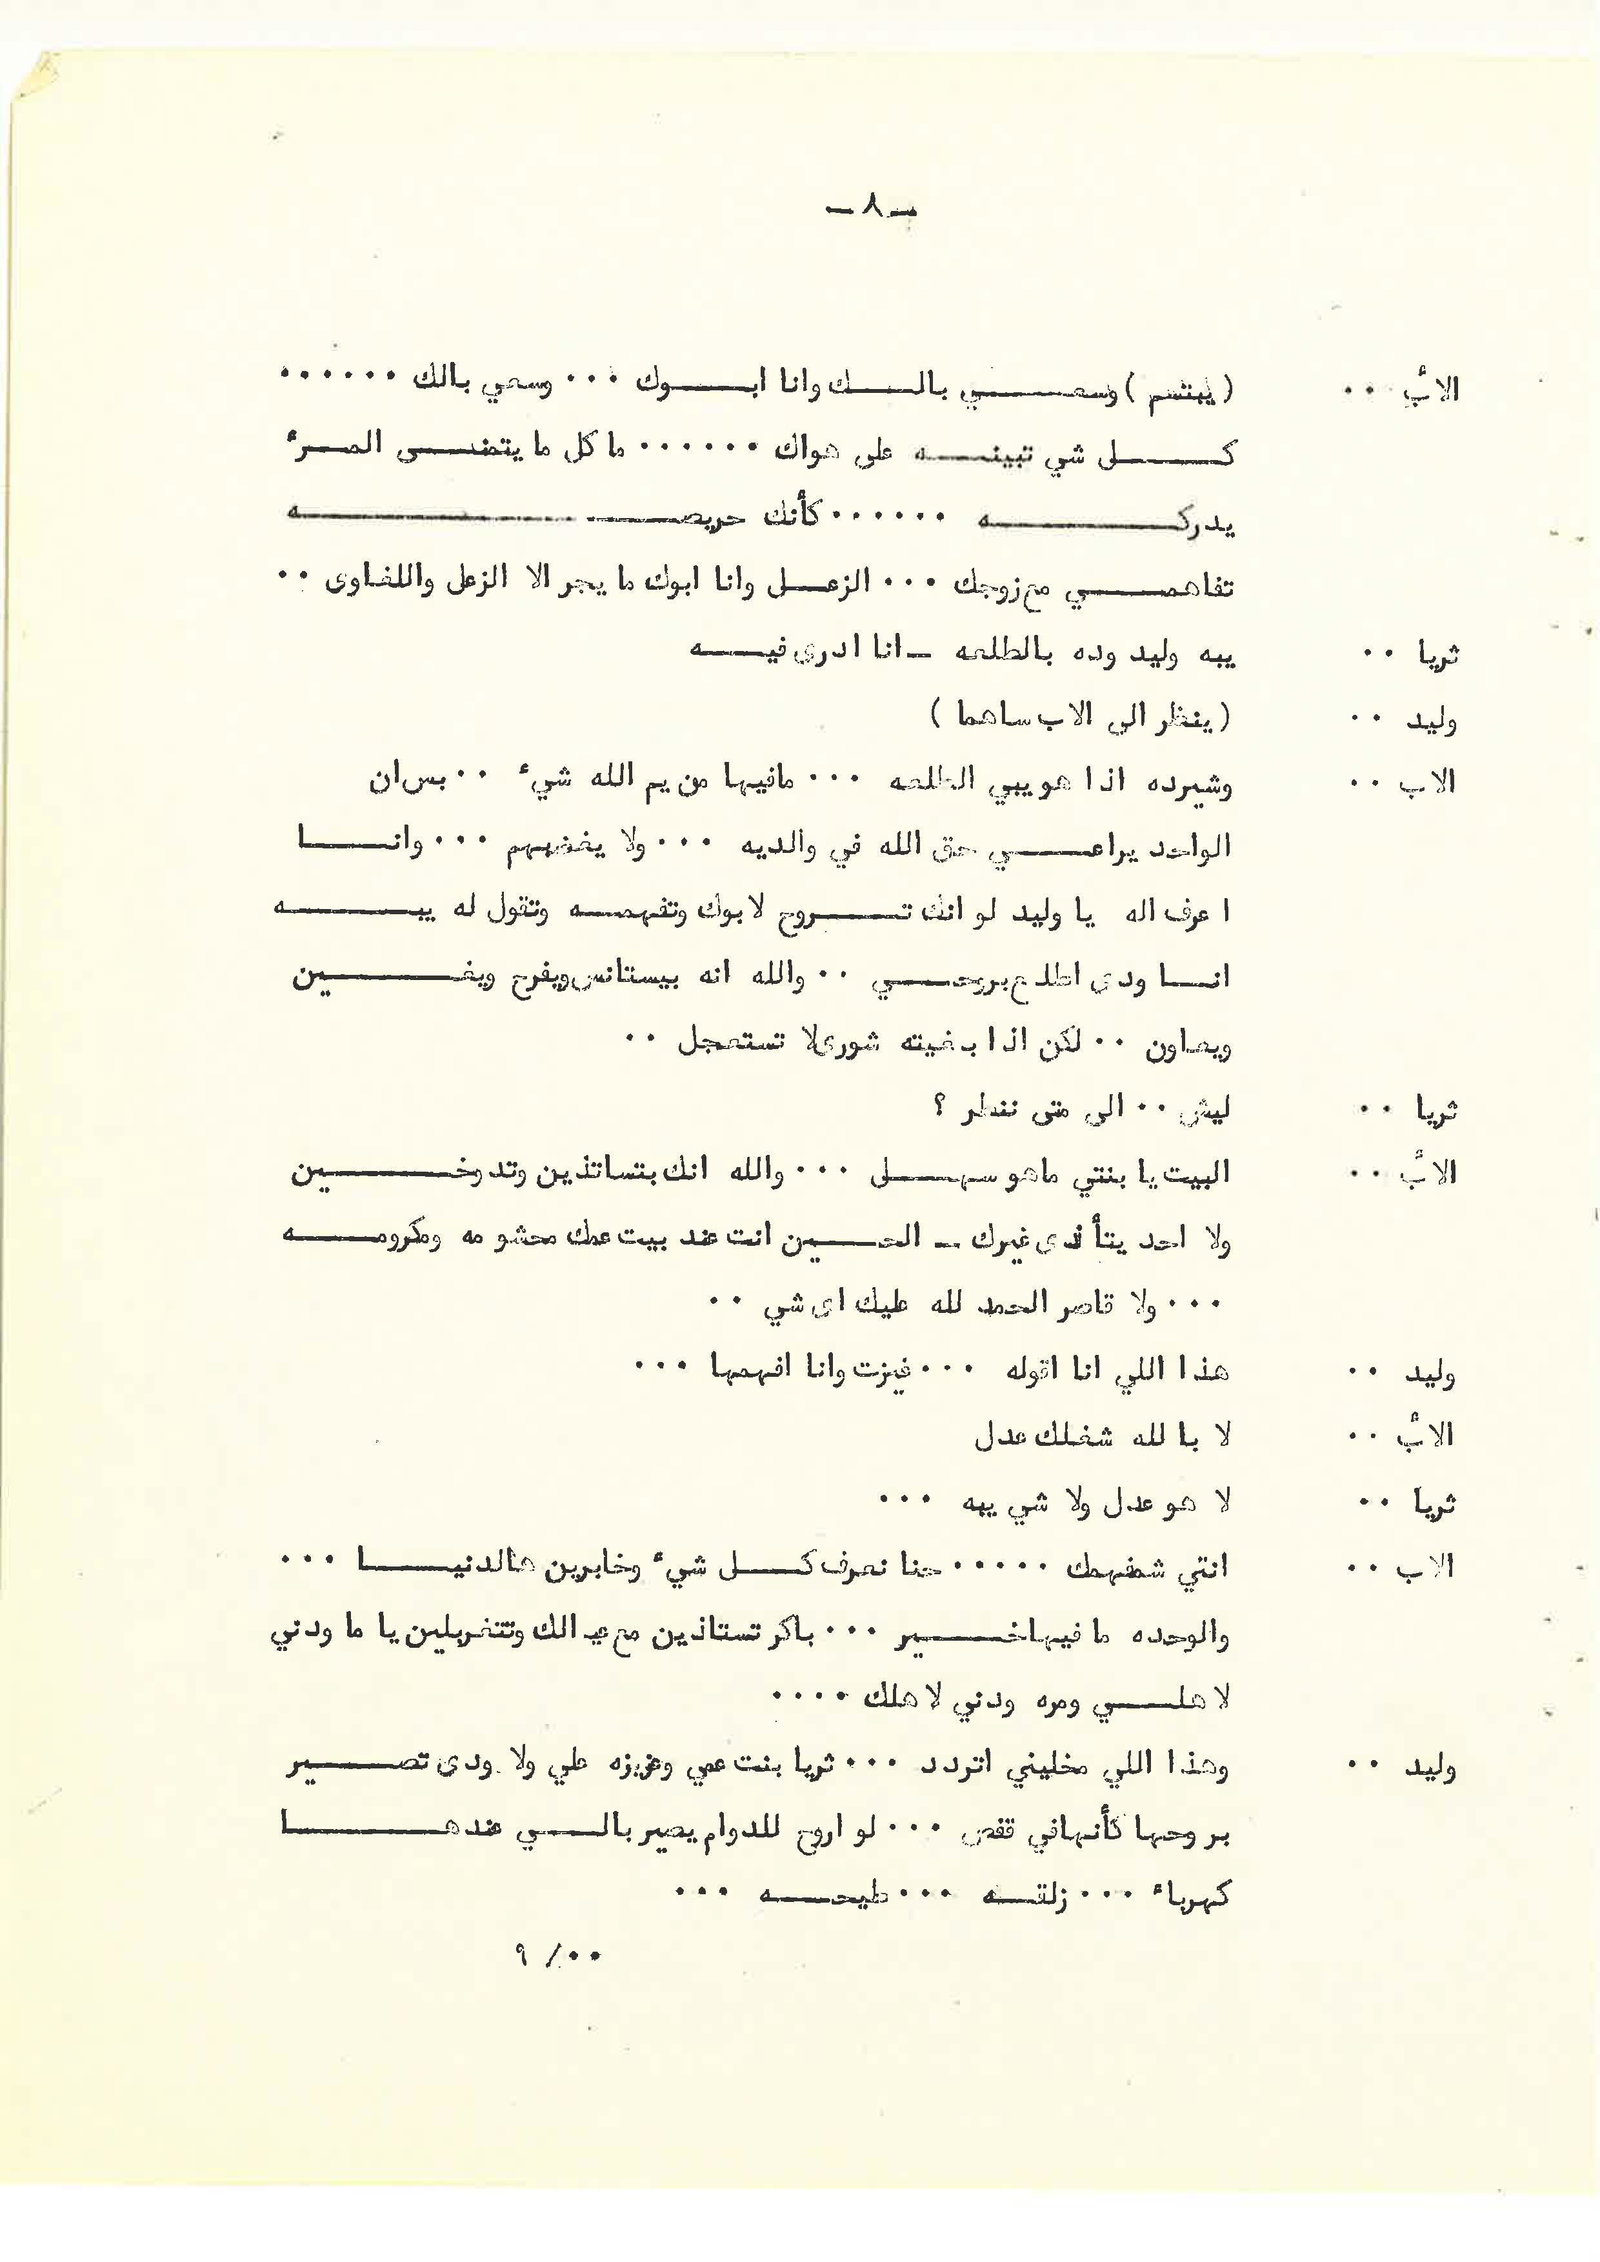 ـ ٨ ـ
الاب ٠٠ ( يبتسم ) وسعي بالك وانا ابوك ٠٠٠ وسعي بالك ٠٠٠٠٠٠
كل شي تبينه على هواك ٠٠٠٠٠٠ ما كل ما يتمنى المرء
يدركه ٠٠٠٠٠٠ كأنك حريصه
تفاهمي مع زوجك ٠٠٠ الزعل وانا ابوك ما يجر الا الزعل واللغاوى ٠٠
ثريا ٠٠ يبه وليد وده بالطلعه ـ انا ادرى فيه
وليد ٠٠ ( ينظر الى الاب ساهما )
الاب ٠٠ وشيرده اذا هو يبي الطلعه ٠٠٠ مافيها من يم الله شيء ٠٠ بس ان
الواحد يراعي حق الله في والديه ٠٠٠ ولا يغضبهم ٠٠٠ وانا
اعرف اله يا وليد لو انك تروح لابوك وتفهمه وتقول له يبه
انا ودى اطلع بروحي ٠٠ والله انه بيستانس ويفرح ويفين
ويعاون ٠٠ لكن اذا بغيته شورى لا تستعجل ٠٠
ثريا ٠٠ ليش ٠٠ الى متى ننطر ؟
الاب ٠٠ البيت يا بنتي ماهو سهل ٠٠٠ والله انك بتساتذين وتدوخين
ولا احد يتأذى غيرك ـ الحين انت عند بيت عمك محشومه ومكرومه
٠٠٠ ولا قاصر الحمد لله عليك اى شي ٠٠
وليد ٠٠ هذا اللي انا اقوله ٠٠٠ غيزت وانا افهمها ٠٠٠
الاب ٠٠ لا بالله شغلك عدل
ثريا ٠٠ لا هو عدل ولا شي يبه ٠٠٠
الاب ٠٠ انتي شمفهمك ٠٠٠٠٠ حنا نعرف كل شيء وخابرين هالدنيا ٠٠٠
والوحده ما فيها خير ٠٠٠ باكر تستاذين مع عيالك وتتغربلين يا ما ودني
لاهلي ومره ودني لاهلك ٠٠٠٠
وليد ٠٠ وهذا اللي مخليني اتردد ٠٠٠ ثريا بنت عمي وعزيزه علي ولا ودى تصير
بروحها كأنها في قفص ٠٠٠ لو اروح للدوام يصير بالي عندها
كهرباء ٠٠٠ زلقه ٠٠٠ طيحه ٠٠٠
٠٠/ ٩